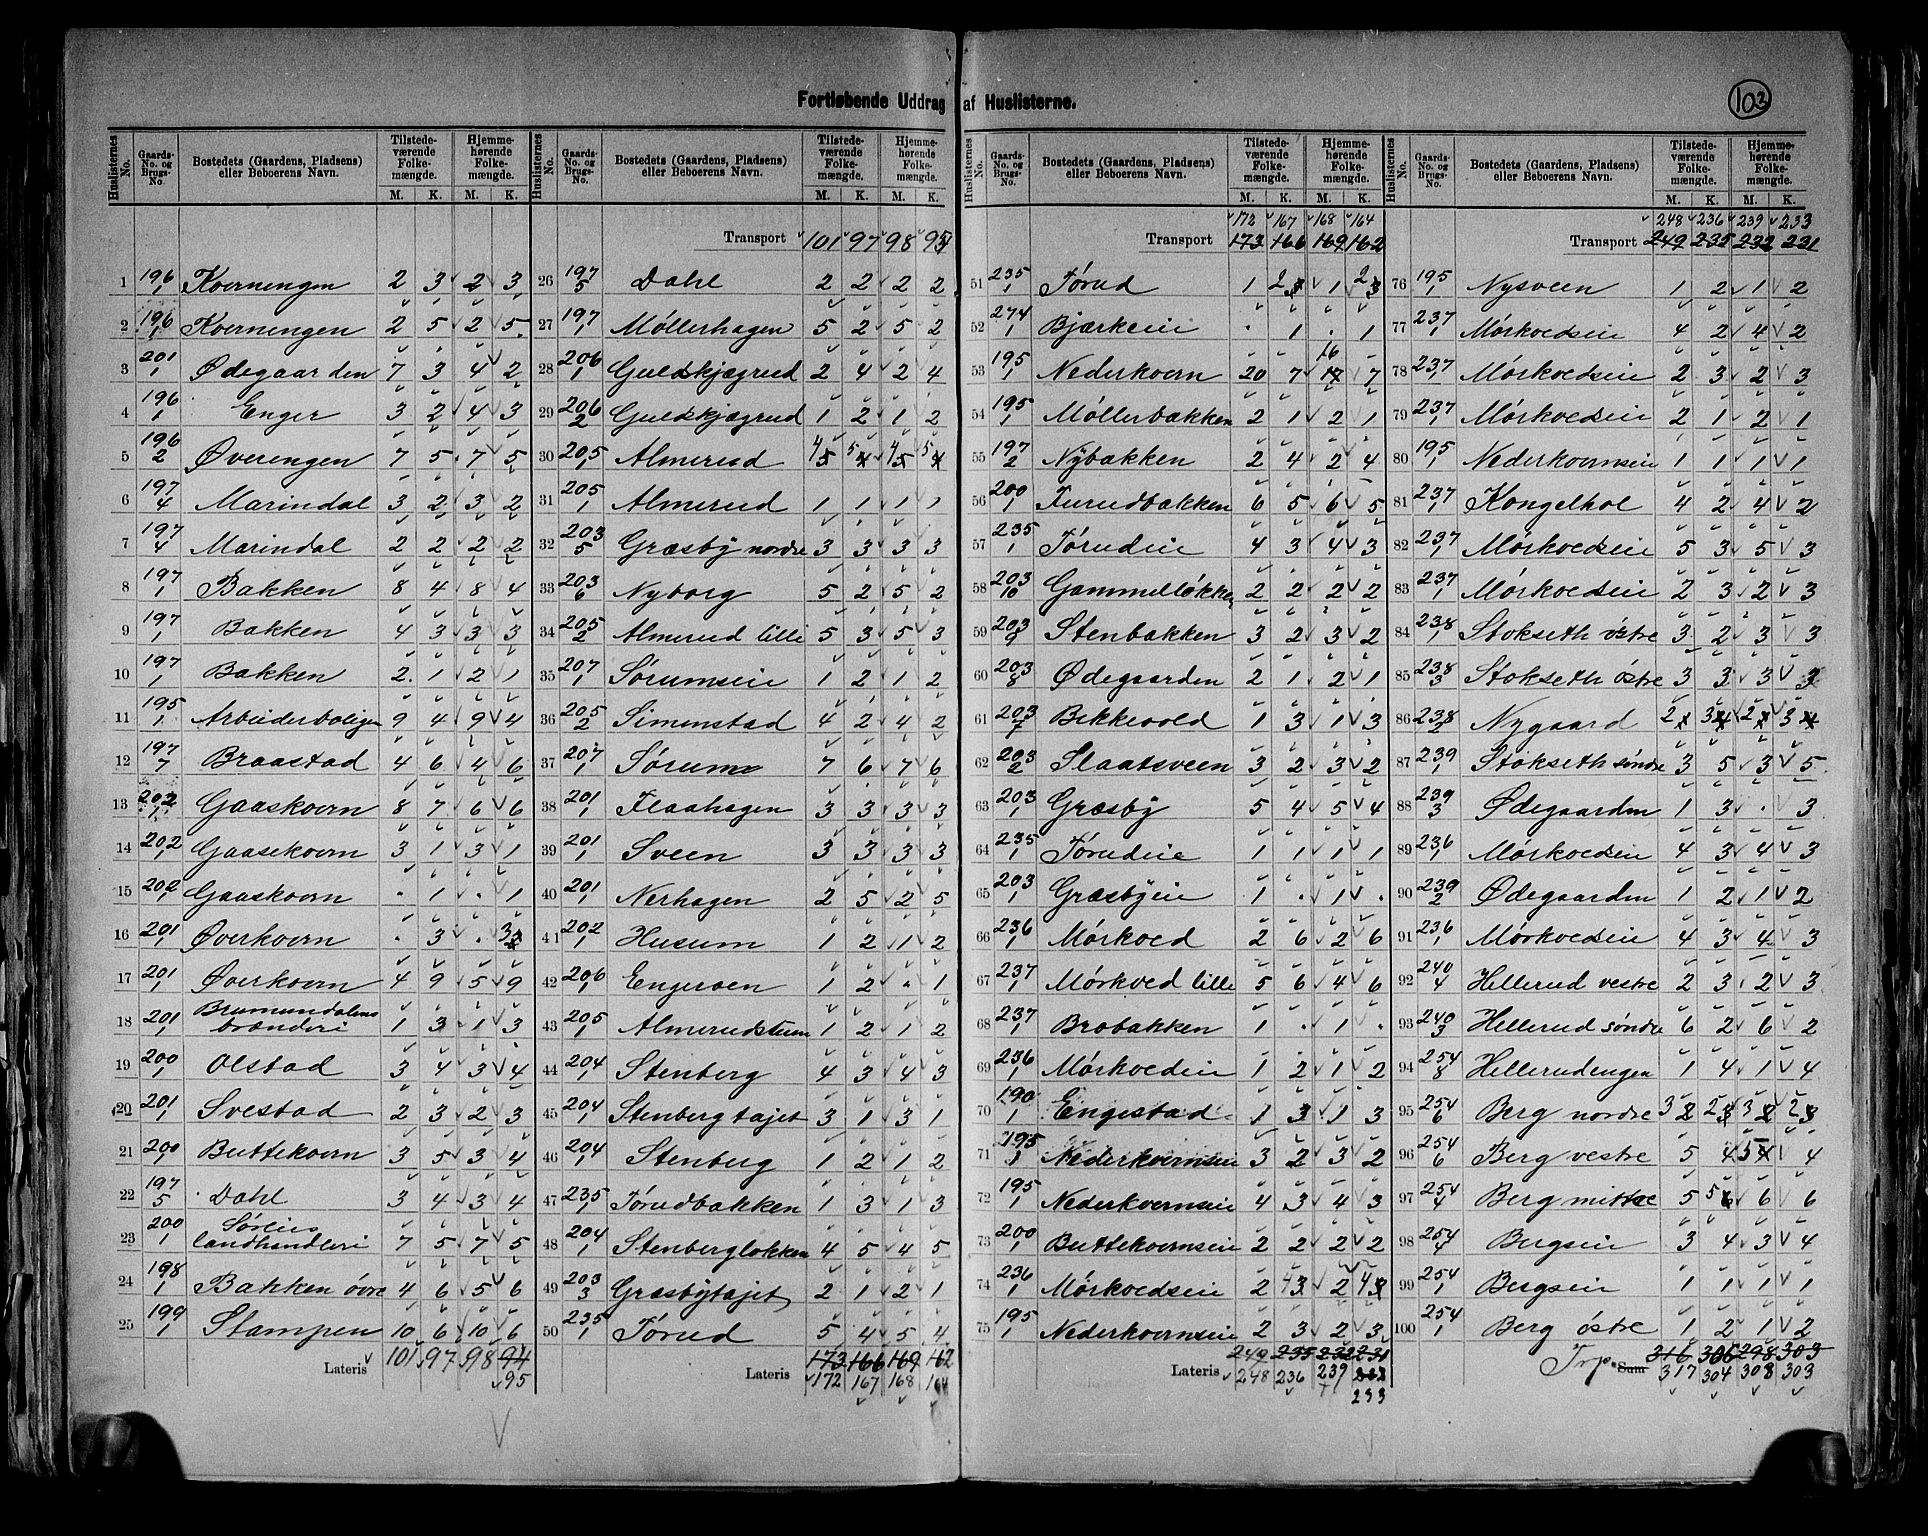 Fortløbende Uddrag af Huslisterne.
103
Huslisternes No. | Gaards-No. og Brugs-No. | Bostedets (Gaardens, Pladsens) eller Beboerens Navn. | Tilstedeværende Folkemængde. M. K. | Hjemmehørende Folkemængde. M. K.
1 196/1 Kverningen 2 3 2 3
2 196/1 Kverningen 2 5 2 5
3 201/1 Ødegaarden 7 3 4 2
4 196/1 Enger 3 2 4 3
5 196/2 Øverengen 7 5 7 5
6 197/4 Marindal 3 2 3 2
7 197/4 Marindal 2 2 2 2
8 197/1 Bakken 8 4 8 4
9 197/1 Bakken 4 3 3 3
10 197/1 Bakken 2 1 2 1
11 195/1 Arbeiderboligen 9 4 9 4
12 197/7 Braastad 4 6 4 6
13 202/1 Gaaskvern 8 7 6 6
14 202/1 Gaasekvern 3 1 3 1
15 202/1 Gaaskvern . 1 . 1
16 201/1 Øverkvern . 3 . 3
17 201/1 Øverkvern 4 9 5 9
18 201/1 Brumundalens brænderi 1 3 1 3
19 200/1 Olstad 3 4 3 4
20 201/1 Svestad 2 3 2 3
21 200/1 Buttekvern 3 5 3 4
22 197/5 Dahl 3 4 3 4
23 200/1 Søreies landhandleri 7 5 7 5
24 198/1 Bakken övre 4 6 5 6
25 199/1 Stampen 10 6 10 6
Lateris 101 97 98 94
95
Transport 101 97 98 95
26 197/5 Dahl 2 2 2 2
27 197/1 Møllerhagen 5 2 5 2
28 206/1 Guldskjægrud 2 4 2 4
29 206/2 Guldskjægrud 1 2 1 2
30 205/1 Almerud 4 5 4 5
31 205/1 Almerud 1 1 1 1
32 203/5 Græsby nordre 3 3 3 3
33 203/6 Nyborg 5 2 5 2
34 205/2 Almerud lille 5 3 5 3
35 207/1 Sørumseie 1 2 1 2
36 205/2 Simenstad 4 2 4 2
37 207/1 Sørum 7 6 7 6
38 201/1 Flaahagen 3 3 3 3
39 201/1 Sveen 3 3 3 3
40 201/1 Nerhagen 2 5 2 5
41 202/1 Husum 1 2 1 2
42 206/1 Engeroen 1 2 . 1
43 205/1 Almerudstuen 1 2 1 2
44 204/1 Stenberg 4 3 4 3
45 204/1 Stenbergtajet 3 1 3 1
46 204/1 Stenberg 1 2 1 2
47 235/1 Tørudbakken 1 3 1 3
48 204/1 Stenbergløkken 4 5 4 5
49 203/3 Græsbytajet 2 1 2 1
50 235/1 Tørud 5 4 5 4
Lateris 173 166 169 162
172 167 168 164
172 167 168 164
Transport 173 166 169 162
51 235/1 Tørud 1 2 1 2
52 274/1 Bjærkeeie . 1 . 1
53 195/1 Nederkvern 20 7 16 7
54 195/1 Møllerbakken 2 1 2 1
55 197/2 Nybakken 2 4 2 4
56 200/1 Furudbakken 6 5 6 5
57 235/1 Tørudeie 4 3 4 3
58 203/10 Gammelløkken 2 2 2 2
59 203/8 Stenbakken 3 2 3 2
60 203/8 Ødegaarden 2 1 2 1
61 203/7 Bekkevold 1 3 1 3
62 203/2 Slaatsveen 3 2 3 2
63 203/1 Græsby 5 4 5 4
64 235/1 Tørudeie 1 1 1 1
65 203/1 Græsbyeie 1 . 1 .
66 236/1 Mørkved 2 6 2 6
67 237/1 Mørkved lille 5 6 4 6
68 237/1 Brobakken 1 . 1 .
69 236/1 Mørkvedeie 1 2 1 2
70 190/1 Engestad 1 3 1 3
71 195/1 Nederkvernseie 3 2 3 2
72 195/1 Nederkvernseie 4 3 4 3
73 200/1 Buttekvernseie 2 2 2 2
74 236/1 Mørkvedseie 2 4 2 4
75 195/1 Nederkvernseie 2 3 2 3
Lateris 249 235 232 231
248 236 239
233
248 236 239 233
Transport 249 235 232 231
76 195/1 Nysveen 1 2 1 2
77 237/1 Mørkvedseie 4 2 4 2
78 237/1 Mørkvedseie 2 3 2 3
79 237/1 Mørkvedseie 2 1 2 1
80 195/1 Nederkvernseie 1 1 1 1
81 237/1 Kongelhol 4 2 4 2
82 237/1 Mørkvedseie 5 3 5 3
83 237/1 Mørkvedseie 2 3 2 3
84 238/1 Stokseth östre 3 2 3 3
85 238/3 Stokseth östre 3 3 3 3
86 238/2 Nygaard 2 3 2 3
87 239/1 Stokseth søndre 3 5 3 5
88 239/3 Ødegaarden 1 3 . 3
89 236/1 Mørkvedseie 4 3 4 3
90 239/2 Ødegaarden 1 2 1 2
91 236/1 Mørkvedseie 4 3 4 3
92 240/4 Hellerud vestre 2 3 2 3
93 240/3 Hellerud søndre 6 2 6 2
94 254/8 Hellerudengen 1 4 1 4
95 254/6 Berg nordre 3 2 3 2
96 254/6 Berg vestre 5 4 5 4
97 254/4 Berg mittre 5 5 6 6
98 254/4 Bergseie 3 4 3 4
99 254/1 Bergseie 1 1 1 1
100 254/1 Berg östre 1 2 1 2
Trp. Sum 316 306 298 303
317 304 308 303